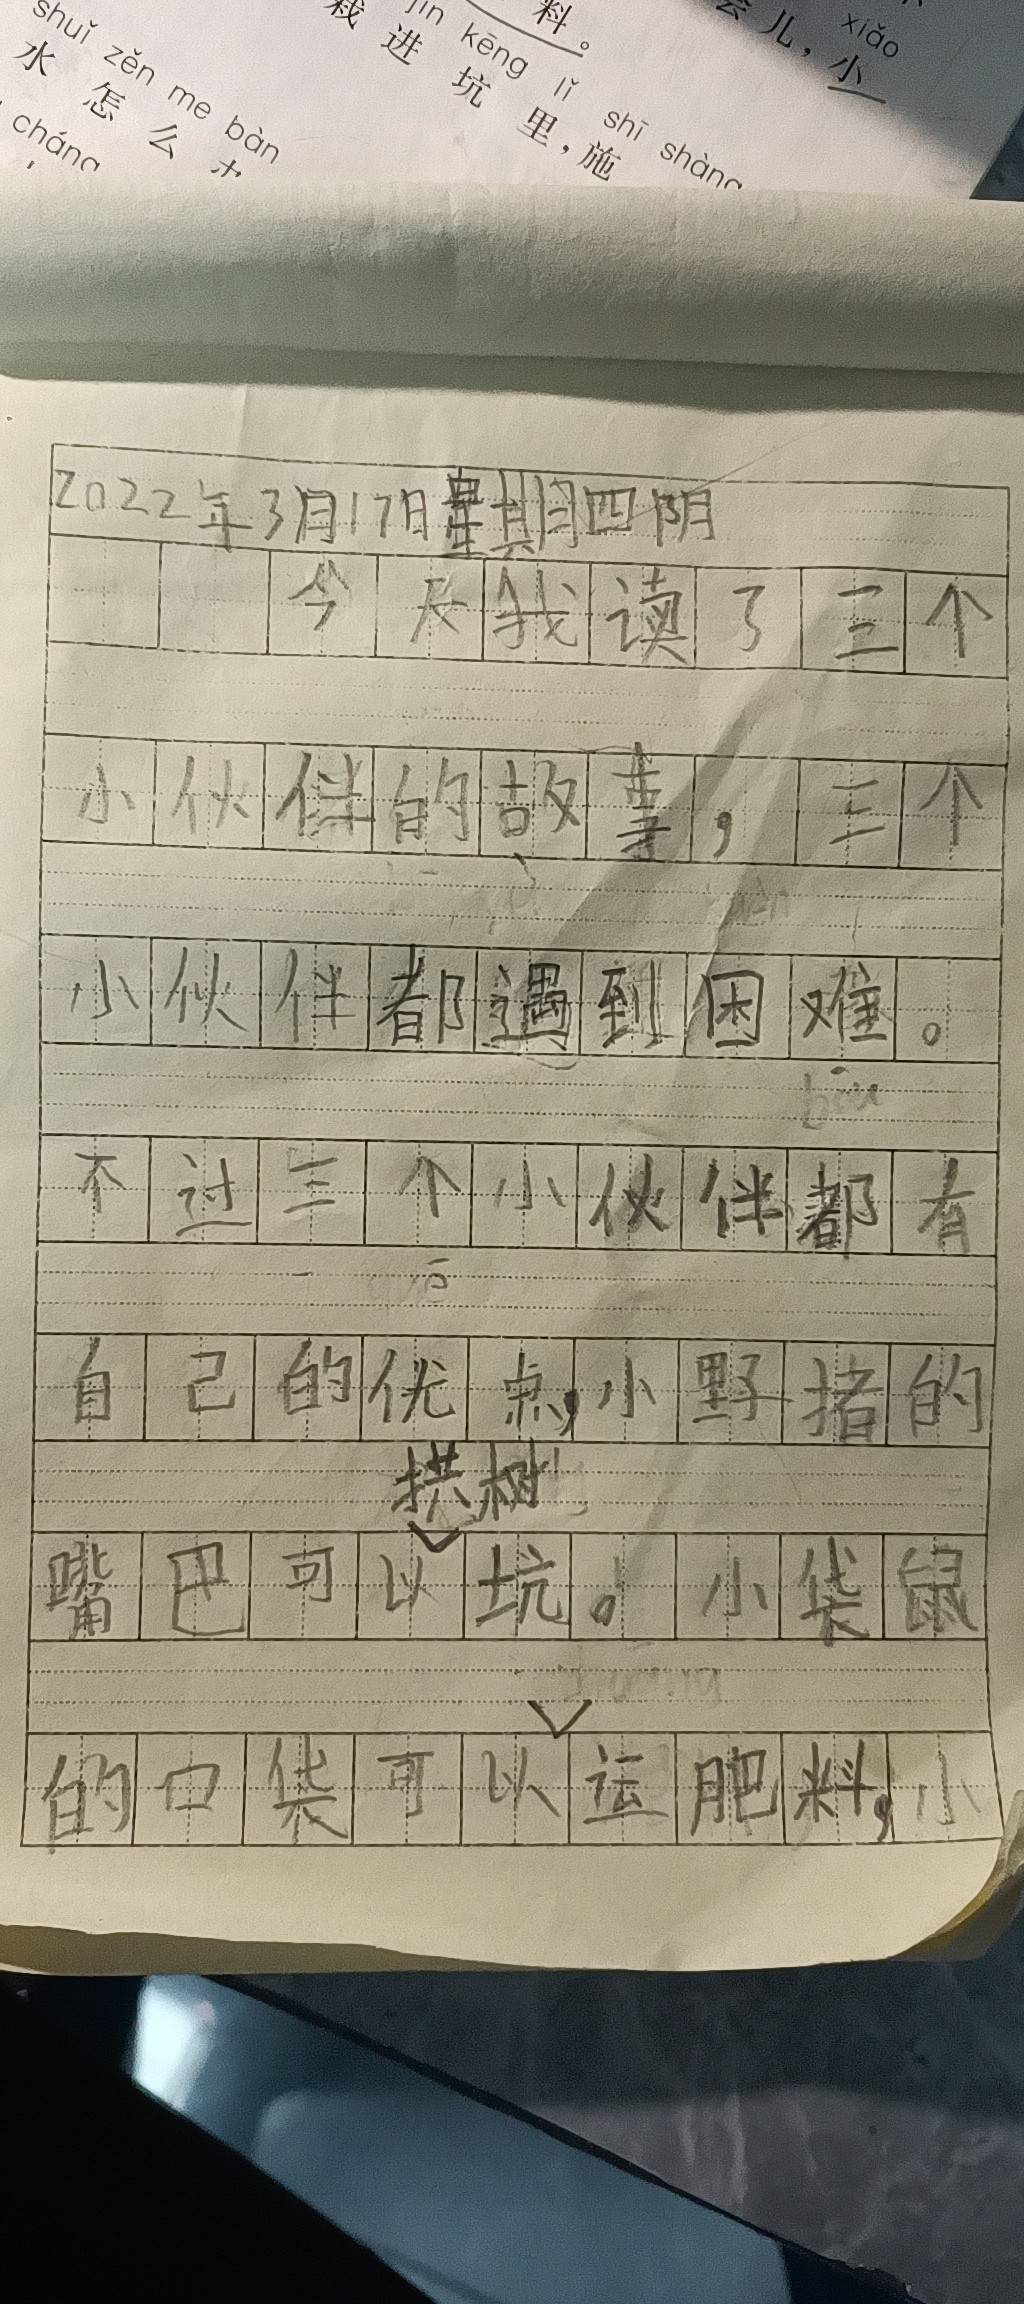 shuǐ zěn me bàn
水怎么
cháng
栽进坑里，施
jìn kēng lǐ shī shàng
料。
会儿，小
xiǎo
2022年3月17日星期四阴
今天我读了三个
小伙伴的故事，三个
小伙伴都遇到困难。
bàn
不过三个小伙伴都有
自己的优点，小野猪的
拱树
嘴巴可以坑。小袋鼠
的口袋可以运肥料，小